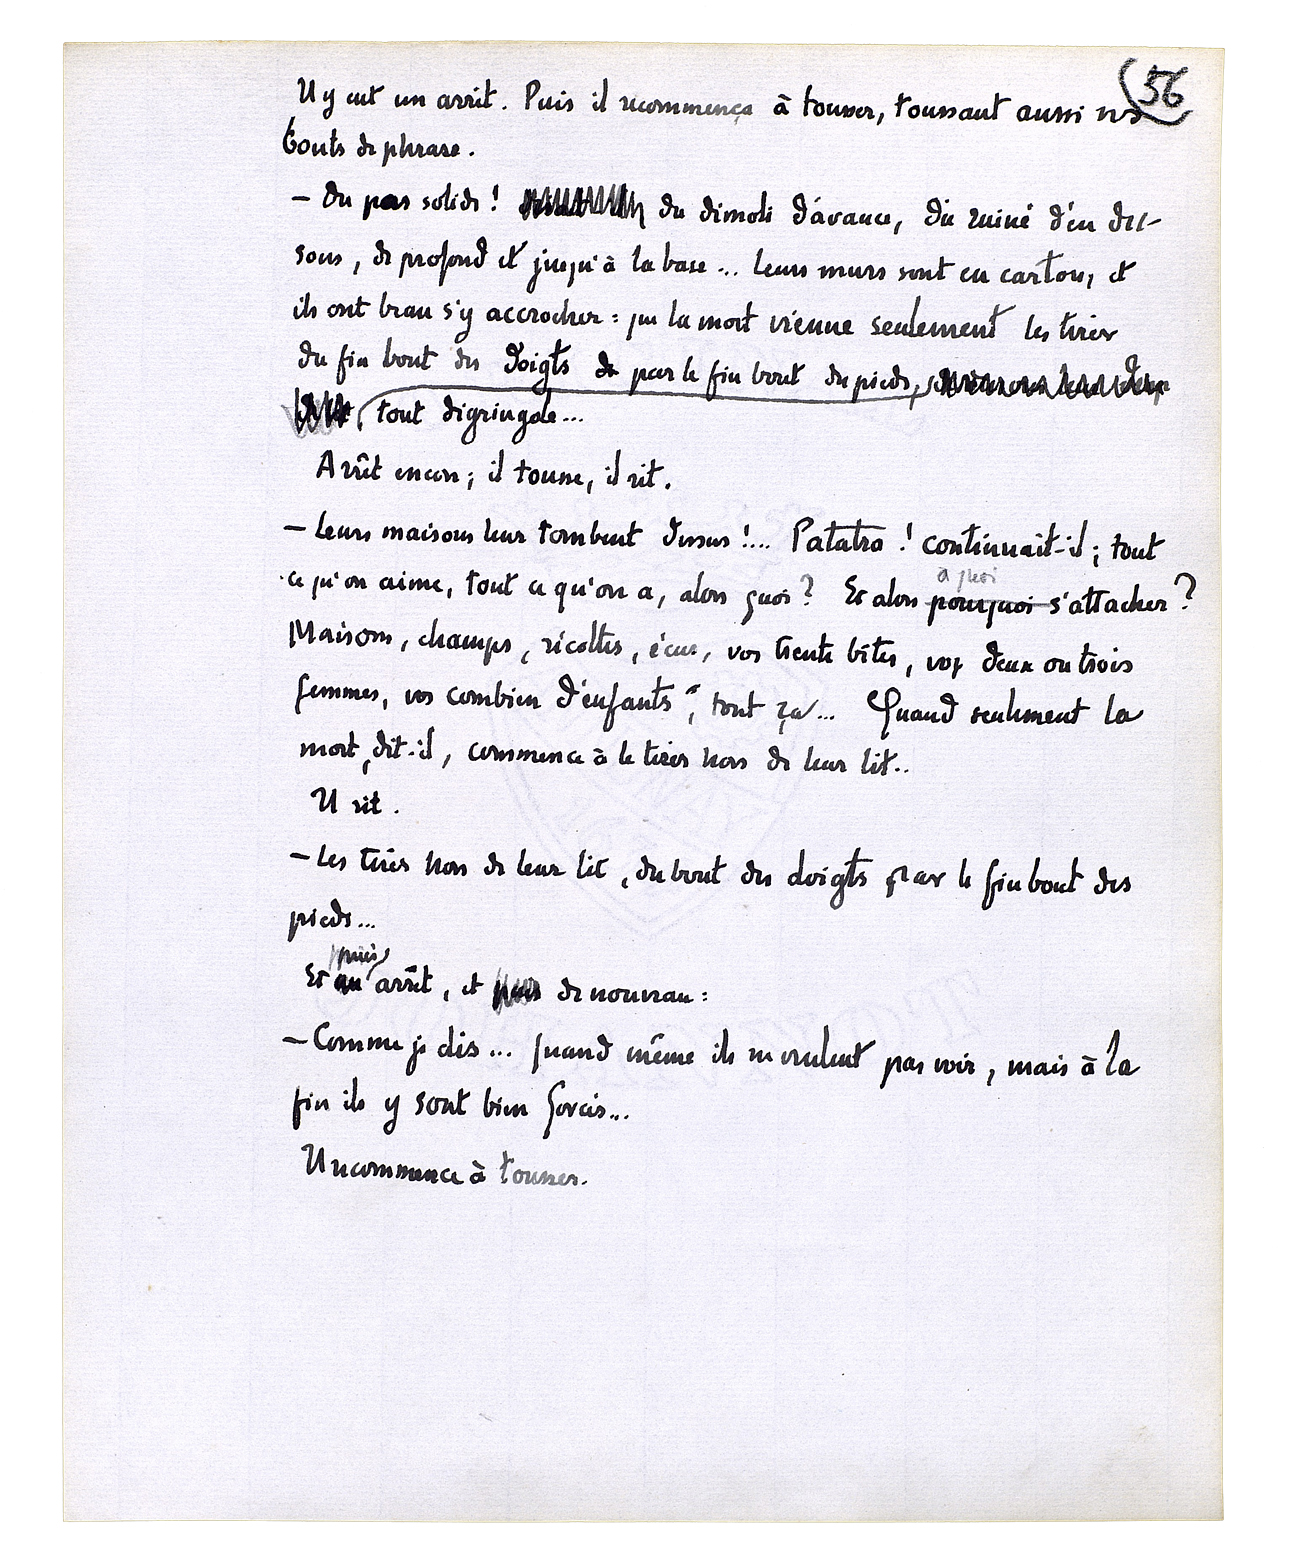 56
Il y eut un arrêt. Puis il recommença à tousser, toussant aussi ses
bouts de phrase.
– Du pas solide ! du démoli d'avance, du ruiné d'en des-
sous, de profond et jusqu'à la base... Leurs murs sont en carton, et
ils ont beau s'y accrocher : que la mort vienne seulement les tirer
du fin bout des doigts de par le fin bout des pieds,
tout dégringole...
Arrêt encore ; il tousse, il rit.
– Leurs maisons leur tombent dessus !... Patatra ! continuait-il ; tout
à quoi
ce qu'on aime, tout ce qu'on a, alors quoi ? Et alors pourquoi s'attacher ?
Maisons, champs, récoltes, écus, vos trente bêtes, vos deux ou trois
femmes, vos combien d'enfants, tout ça... Quand seulement la
mort, dit-il, commence à le tirer hors de leur lit..
Il rit.
– Les tirer hors de leur lit, du bout des doigts par le fin bout des
pieds...
puis
Et un arrêt, et puis de nouveau :
– Comme je dis... quand même ils ne veulent pas voir, mais à la
fin ils y sont bien forcés...
Il recommence à tousser.